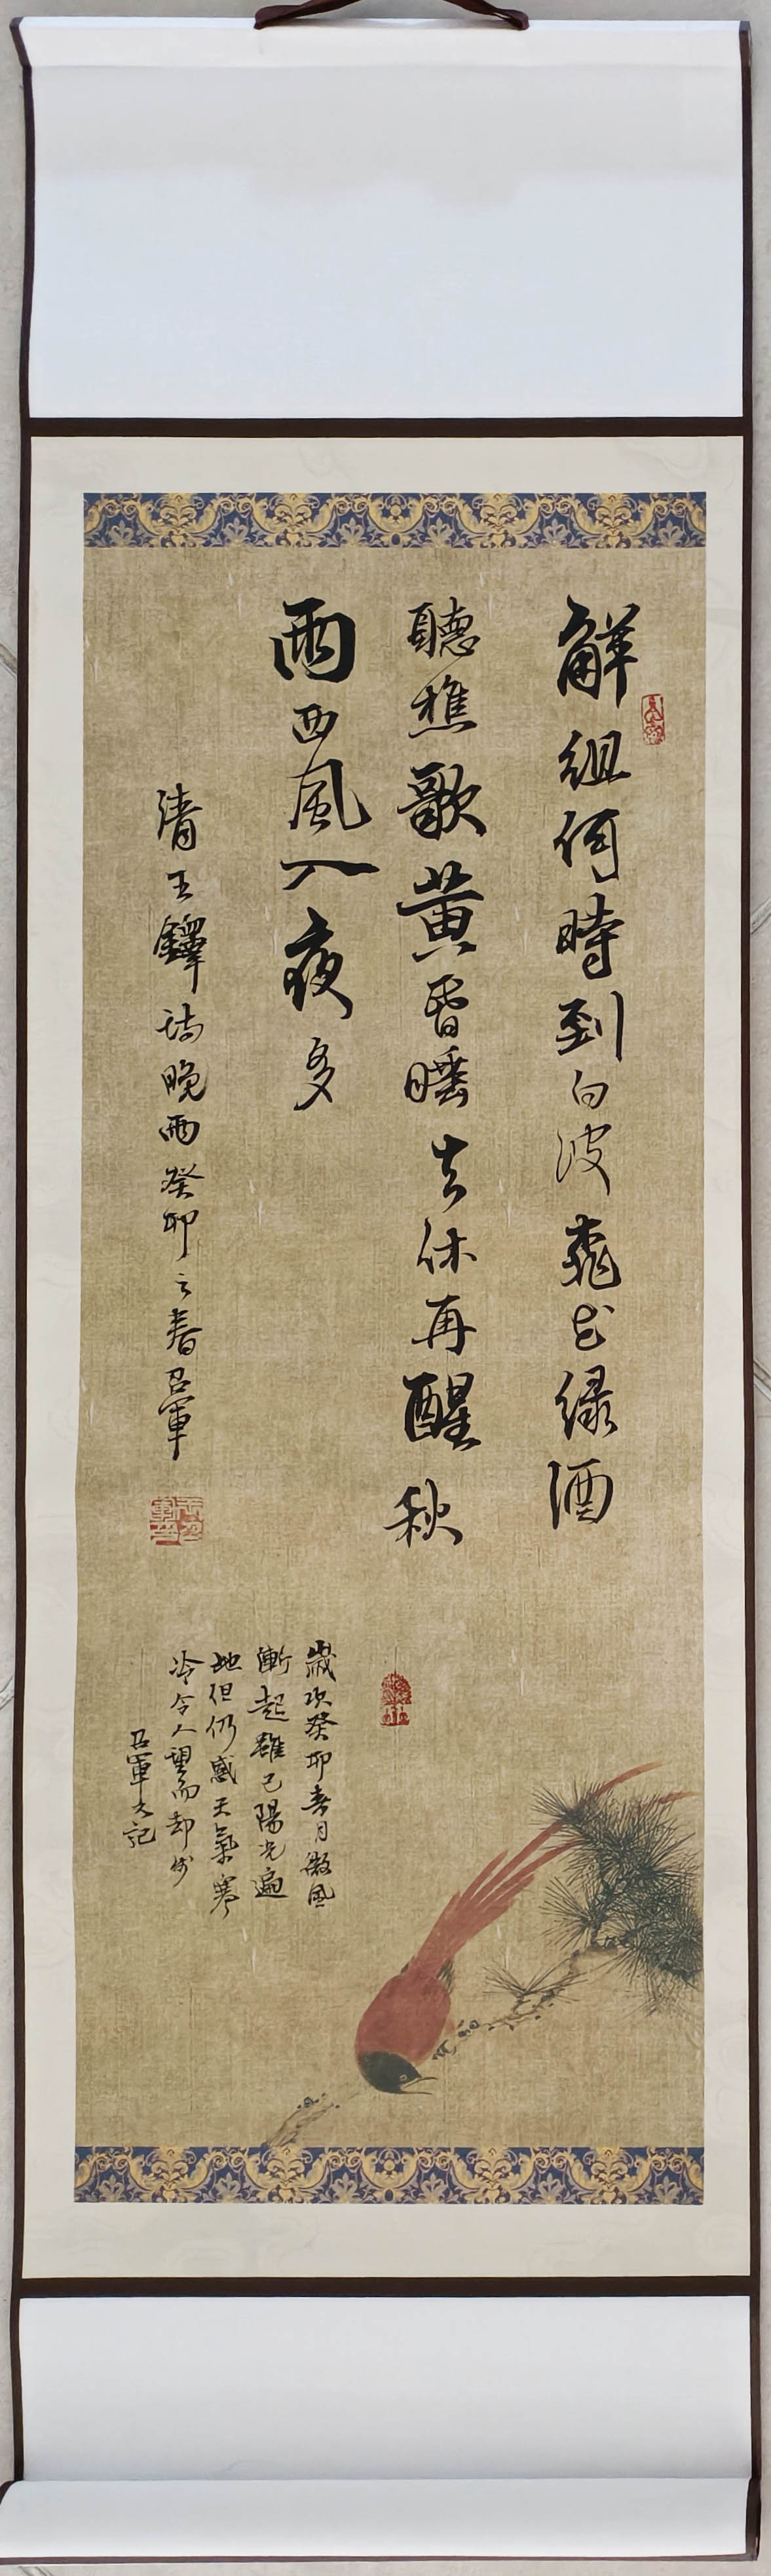 解組何時到白波飛花緑酒
聽樵歌黄昏睡去休再醒秋
雨西風入夜多
清王鐸詩晚雨癸卯之春召軍
歲次癸卯春月微風
漸起雖已陽光遍
地但仍感天氣寒
冷令人望而却步
召軍又記